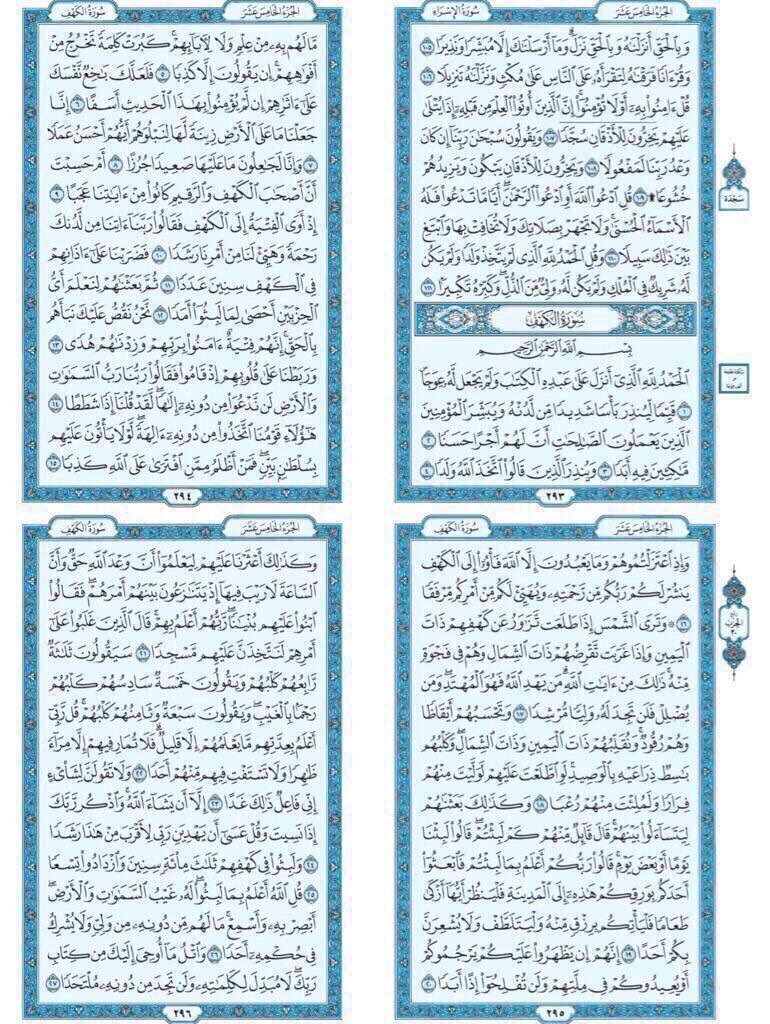 الجزء الخامس عشر
سورة الإسراء
وَبِالْحَقِّ أَنزَلْنَاهُ وَبِالْحَقِّ نَزَلَ ۗ وَمَا أَرْسَلْنَاكَ إِلَّا مُبَشِّرًا وَنَذِيرًا ١٠٥
وَقُرْءَانًا فَرَقْنَاهُ لِتَقْرَأَهُ عَلَى النَّاسِ عَلَىٰ مُكْثٍ وَنَزَّلْنَاهُ تَنزِيلًا ١٠٦
قُلْ ءَامِنُوا بِهِ أَوْ لَا تُؤْمِنُوا ۚ إِنَّ الَّذِينَ أُوتُوا الْعِلْمَ مِن قَبْلِهِ إِذَا يُتْلَىٰ
عَلَيْهِمْ يَخِرُّونَ لِلْأَذْقَانِ سُجَّدًا ١٠٧ وَيَقُولُونَ سُبْحَانَ رَبِّنَا إِن كَانَ
وَعْدُ رَبِّنَا لَمَفْعُولًا ١٠٨ وَيَخِرُّونَ لِلْأَذْقَانِ يَبْكُونَ وَيَزِيدُهُمْ
خُشُوعًا ۩ ١٠٩ قُلِ ادْعُوا اللَّهَ أَوِ ادْعُوا الرَّحْمَٰنَ ۖ أَيًّا مَّا تَدْعُوا فَلَهُ
الْأَسْمَاءُ الْحُسْنَىٰ ۚ وَلَا تَجْهَرْ بِصَلَاتِكَ وَلَا تُخَافِتْ بِهَا وَابْتَغِ
بَيْنَ ذَٰلِكَ سَبِيلًا ١١٠ وَقُلِ الْحَمْدُ لِلَّهِ الَّذِي لَمْ يَتَّخِذْ وَلَدًا وَلَمْ يَكُن
لَّهُ شَرِيكٌ فِي الْمُلْكِ وَلَمْ يَكُن لَّهُ وَلِيٌّ مِّنَ الذُّلِّ ۖ وَكَبِّرْهُ تَكْبِيرًا ١١١
سورة الكهف
بِسْمِ اللَّهِ الرَّحْمَٰنِ الرَّحِيمِ
الْحَمْدُ لِلَّهِ الَّذِي أَنزَلَ عَلَىٰ عَبْدِهِ الْكِتَابَ وَلَمْ يَجْعَل لَّهُ عِوَجًا
١ قَيِّمًا لِّيُنذِرَ بَأْسًا شَدِيدًا مِّن لَّدُنْهُ وَيُبَشِّرَ الْمُؤْمِنِينَ
الَّذِينَ يَعْمَلُونَ الصَّالِحَاتِ أَنَّ لَهُمْ أَجْرًا حَسَنًا ٢
مَّاكِثِينَ فِيهِ أَبَدًا ٣ وَيُنذِرَ الَّذِينَ قَالُوا اتَّخَذَ اللَّهُ وَلَدًا ٤
٢٩٣
سجدة
الجزء الخامس عشر
سورة الكهف
مَّا لَهُم بِهِ مِنْ عِلْمٍ وَلَا لِآبَائِهِمْ ۚ كَبُرَتْ كَلِمَةً تَخْرُجُ مِنْ
أَفْوَاهِهِمْ ۚ إِن يَقُولُونَ إِلَّا كَذِبًا ٥ فَلَعَلَّكَ بَاخِعٌ نَّفْسَكَ
عَلَىٰ ءَاثَارِهِمْ إِن لَّمْ يُؤْمِنُوا بِهَٰذَا الْحَدِيثِ أَسَفًا ٦ إِنَّا
جَعَلْنَا مَا عَلَى الْأَرْضِ زِينَةً لَّهَا لِنَبْلُوَهُمْ أَيُّهُمْ أَحْسَنُ عَمَلًا
٧ وَإِنَّا لَجَاعِلُونَ مَا عَلَيْهَا صَعِيدًا جُرُزًا ٨ أَمْ حَسِبْتَ
أَنَّ أَصْحَابَ الْكَهْفِ وَالرَّقِيمِ كَانُوا مِنْ ءَايَاتِنَا عَجَبًا ٩
إِذْ أَوَى الْفِتْيَةُ إِلَى الْكَهْفِ فَقَالُوا رَبَّنَا ءَاتِنَا مِن لَّدُنكَ
رَحْمَةً وَهَيِّئْ لَنَا مِنْ أَمْرِنَا رَشَدًا ١٠ فَضَرَبْنَا عَلَىٰ ءَاذَانِهِمْ
فِي الْكَهْفِ سِنِينَ عَدَدًا ١١ ثُمَّ بَعَثْنَاهُمْ لِنَعْلَمَ أَيُّ
الْحِزْبَيْنِ أَحْصَىٰ لِمَا لَبِثُوا أَمَدًا ١٢ نَّحْنُ نَقُصُّ عَلَيْكَ نَبَأَهُم
بِالْحَقِّ ۚ إِنَّهُمْ فِتْيَةٌ ءَامَنُوا بِرَبِّهِمْ وَزِدْنَاهُمْ هُدًى ١٣
وَرَبَطْنَا عَلَىٰ قُلُوبِهِمْ إِذْ قَامُوا فَقَالُوا رَبُّنَا رَبُّ السَّمَاوَاتِ
وَالْأَرْضِ لَن نَّدْعُوَا مِن دُونِهِ إِلَٰهًا ۖ لَّقَدْ قُلْنَا إِذًا شَطَطًا ١٤
هَٰؤُلَاءِ قَوْمُنَا اتَّخَذُوا مِن دُونِهِ ءَالِهَةً ۖ لَّوْلَا يَأْتُونَ عَلَيْهِم
بِسُلْطَانٍ بَيِّنٍ ۖ فَمَنْ أَظْلَمُ مِمَّنِ افْتَرَىٰ عَلَى اللَّهِ كَذِبًا ١٥
٢٩٤
الجزء الخامس عشر
سورة الكهف
وَإِذِ اعْتَزَلْتُمُوهُمْ وَمَا يَعْبُدُونَ إِلَّا اللَّهَ فَأْوُوا إِلَى الْكَهْفِ
يَنشُرْ لَكُمْ رَبُّكُم مِّن رَّحْمَتِهِ وَيُهَيِّئْ لَكُم مِّنْ أَمْرِكُم مِّرْفَقًا
١٦ ۞ وَتَرَى الشَّمْسَ إِذَا طَلَعَت تَّزَاوَرُ عَن كَهْفِهِمْ ذَاتَ
الْيَمِينِ وَإِذَا غَرَبَت تَّقْرِضُهُمْ ذَاتَ الشِّمَالِ وَهُمْ فِي فَجْوَةٍ
مِّنْهُ ۚ ذَٰلِكَ مِنْ ءَايَاتِ اللَّهِ ۗ مَن يَهْدِ اللَّهُ فَهُوَ الْمُهْتَدِ ۖ وَمَن
يُضْلِلْ فَلَن تَجِدَ لَهُ وَلِيًّا مُّرْشِدًا ١٧ وَتَحْسَبُهُمْ أَيْقَاظًا
وَهُمْ رُقُودٌ ۚ وَنُقَلِّبُهُمْ ذَاتَ الْيَمِينِ وَذَاتَ الشِّمَالِ ۖ وَكَلْبُهُم
بَاسِطٌ ذِرَاعَيْهِ بِالْوَصِيدِ ۚ لَوِ اطَّلَعْتَ عَلَيْهِمْ لَوَلَّيْتَ مِنْهُمْ
فِرَارًا وَلَمُلِئْتَ مِنْهُمْ رُعْبًا ١٨ وَكَذَٰلِكَ بَعَثْنَاهُمْ
لِيَتَسَاءَلُوا بَيْنَهُمْ ۚ قَالَ قَائِلٌ مِّنْهُمْ كَمْ لَبِثْتُمْ ۖ قَالُوا لَبِثْنَا
يَوْمًا أَوْ بَعْضَ يَوْمٍ ۚ قَالُوا رَبُّكُمْ أَعْلَمُ بِمَا لَبِثْتُمْ فَابْعَثُوا
أَحَدَكُم بِوَرِقِكُمْ هَٰذِهِ إِلَى الْمَدِينَةِ فَلْيَنظُرْ أَيُّهَا أَزْكَىٰ
طَعَامًا فَلْيَأْتِكُم بِرِزْقٍ مِّنْهُ وَلْيَتَلَطَّفْ وَلَا يُشْعِرَنَّ
بِكُمْ أَحَدًا ١٩ إِنَّهُمْ إِن يَظْهَرُوا عَلَيْكُمْ يَرْجُمُوكُمْ
أَوْ يُعِيدُوكُمْ فِي مِلَّتِهِمْ وَلَن تُفْلِحُوا إِذًا أَبَدًا ٢٠
٢٩٥
الجزء الخامس عشر
سورة الكهف
وَكَذَٰلِكَ أَعْثَرْنَا عَلَيْهِمْ لِيَعْلَمُوا أَنَّ وَعْدَ اللَّهِ حَقٌّ وَأَنَّ
السَّاعَةَ لَا رَيْبَ فِيهَا إِذْ يَتَنَازَعُونَ بَيْنَهُمْ أَمْرَهُمْ ۖ فَقَالُوا
ابْنُوا عَلَيْهِم بُنْيَانًا ۖ رَّبُّهُمْ أَعْلَمُ بِهِمْ ۚ قَالَ الَّذِينَ غَلَبُوا عَلَىٰ
أَمْرِهِمْ لَنَتَّخِذَنَّ عَلَيْهِم مَّسْجِدًا ٢١ سَيَقُولُونَ ثَلَاثَةٌ
رَّابِعُهُمْ كَلْبُهُمْ وَيَقُولُونَ خَمْسَةٌ سَادِسُهُمْ كَلْبُهُمْ
رَجْمًا بِالْغَيْبِ ۖ وَيَقُولُونَ سَبْعَةٌ وَثَامِنُهُمْ كَلْبُهُمْ ۚ قُل رَّبِّي
أَعْلَمُ بِعِدَّتِهِم مَّا يَعْلَمُهُمْ إِلَّا قَلِيلٌ ۗ فَلَا تُمَارِ فِيهِمْ إِلَّا مِرَاءً
ظَاهِرًا وَلَا تَسْتَفْتِ فِيهِم مِّنْهُمْ أَحَدًا ٢٢ وَلَا تَقُولَنَّ لِشَايْءٍ
إِنِّي فَاعِلٌ ذَٰلِكَ غَدًا ٢٣ إِلَّا أَن يَشَاءَ اللَّهُ ۚ وَاذْكُر رَّبَّكَ
إِذَا نَسِيتَ وَقُلْ عَسَىٰ أَن يَهْدِيَنِ رَبِّي لِأَقْرَبَ مِنْ هَٰذَا رَشَدًا
٢٤ وَلَبِثُوا فِي كَهْفِهِمْ ثَلَاثَ مِائَةٍ سِنِينَ وَازْدَادُوا تِسْعًا
٢٥ قُلِ اللَّهُ أَعْلَمُ بِمَا لَبِثُوا ۖ لَهُ غَيْبُ السَّمَاوَاتِ وَالْأَرْضِ ۖ
أَبْصِرْ بِهِ وَأَسْمِعْ ۚ مَا لَهُم مِّن دُونِهِ مِن وَلِيٍّ وَلَا يُشْرِكُ
فِي حُكْمِهِ أَحَدًا ٢٦ وَاتْلُ مَا أُوحِيَ إِلَيْكَ مِن كِتَابِ
رَبِّكَ ۖ لَا مُبَدِّلَ لِكَلِمَاتِهِ وَلَن تَجِدَ مِن دُونِهِ مُلْتَحَدًا ٢٧
٢٩٦